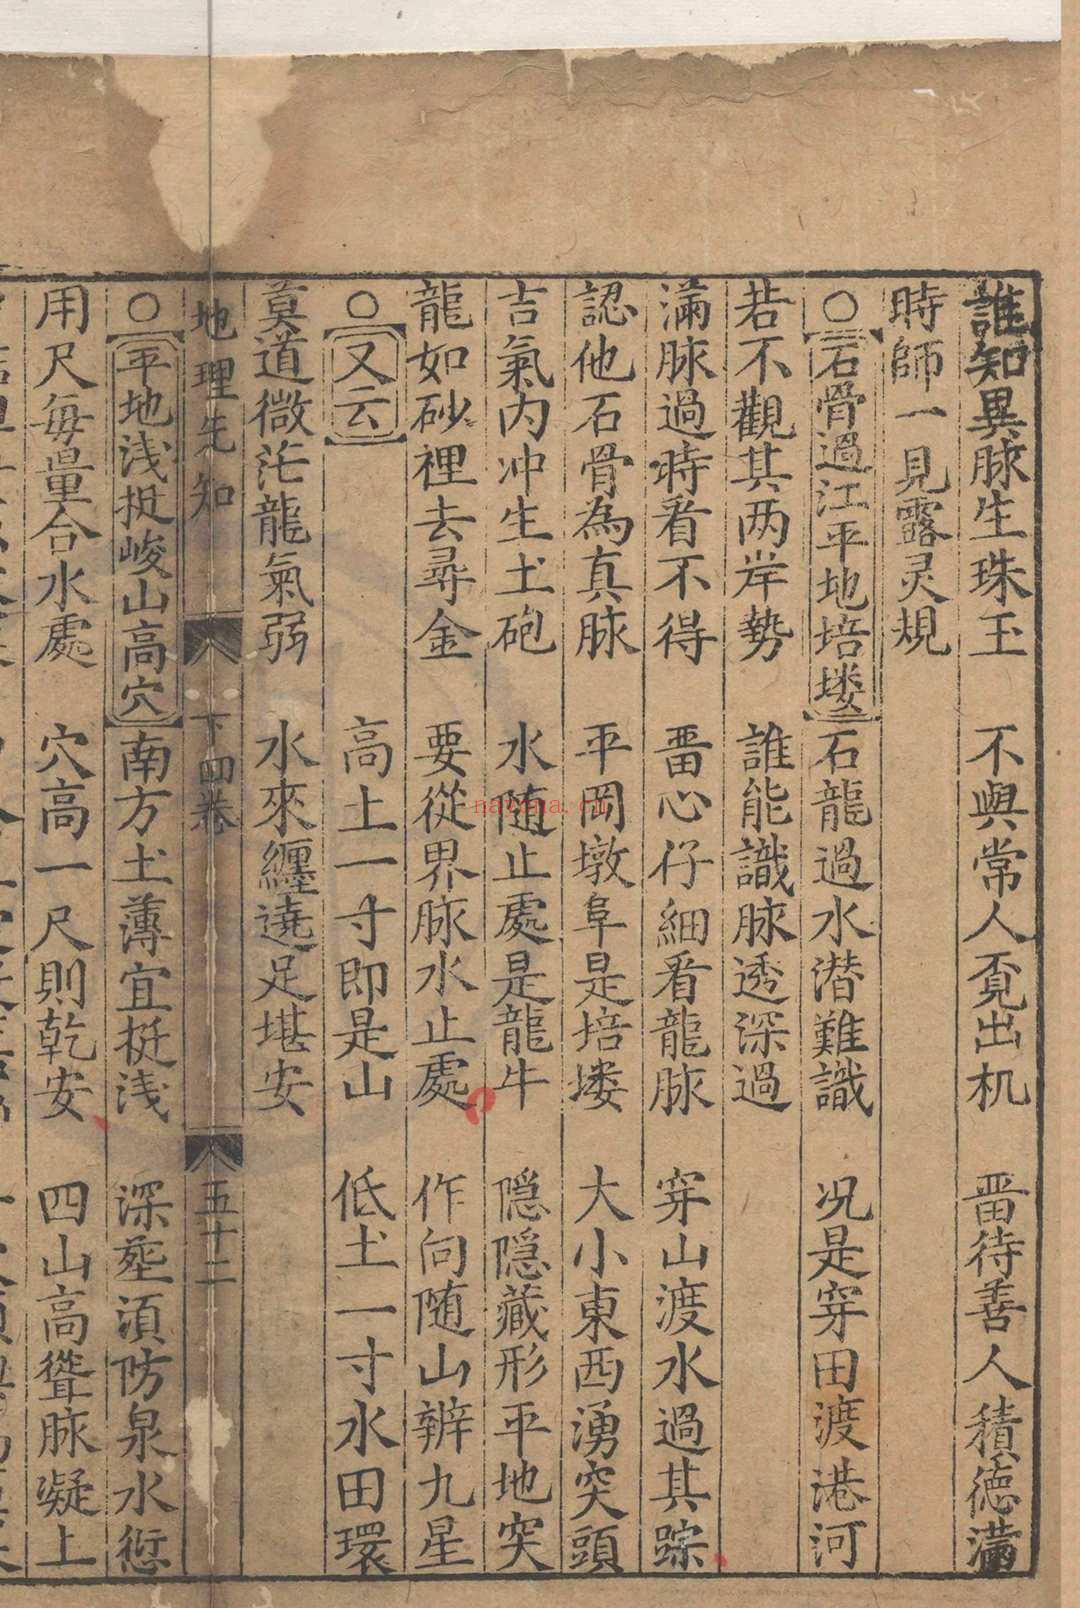 誰知異脉生珠玉　不與常人覔出机　畱待善人積德滿
時師一見露灵規
○石骨過江平地培塿　石龍過水潜難識　况是穿田渡港河
若不觀其两岸勢　誰能識脉透深過
滿脉過時看不得　畱心仔細看龍脉　穿山渡水過其踪
認他石骨為真脉　平岡墩阜是培塿　大小東西湧突頭
吉氣内冲生土砲　水随止處是龍牛　隠隠藏形平地突
龍如砂裡去尋金　要從界脉水止處　作向随山辨九星
○又云　高土一寸即是山　低土一寸水田環
莫道微茫龍氣弱　水來纏遶足堪安
地理先知　下四卷　五十二
○平地浅挺峻山高穴　南方土薄宜挺浅　深塟須防泉水愆
用尺每量合水處　穴高一尺則乾安　四山高聳脉凝上